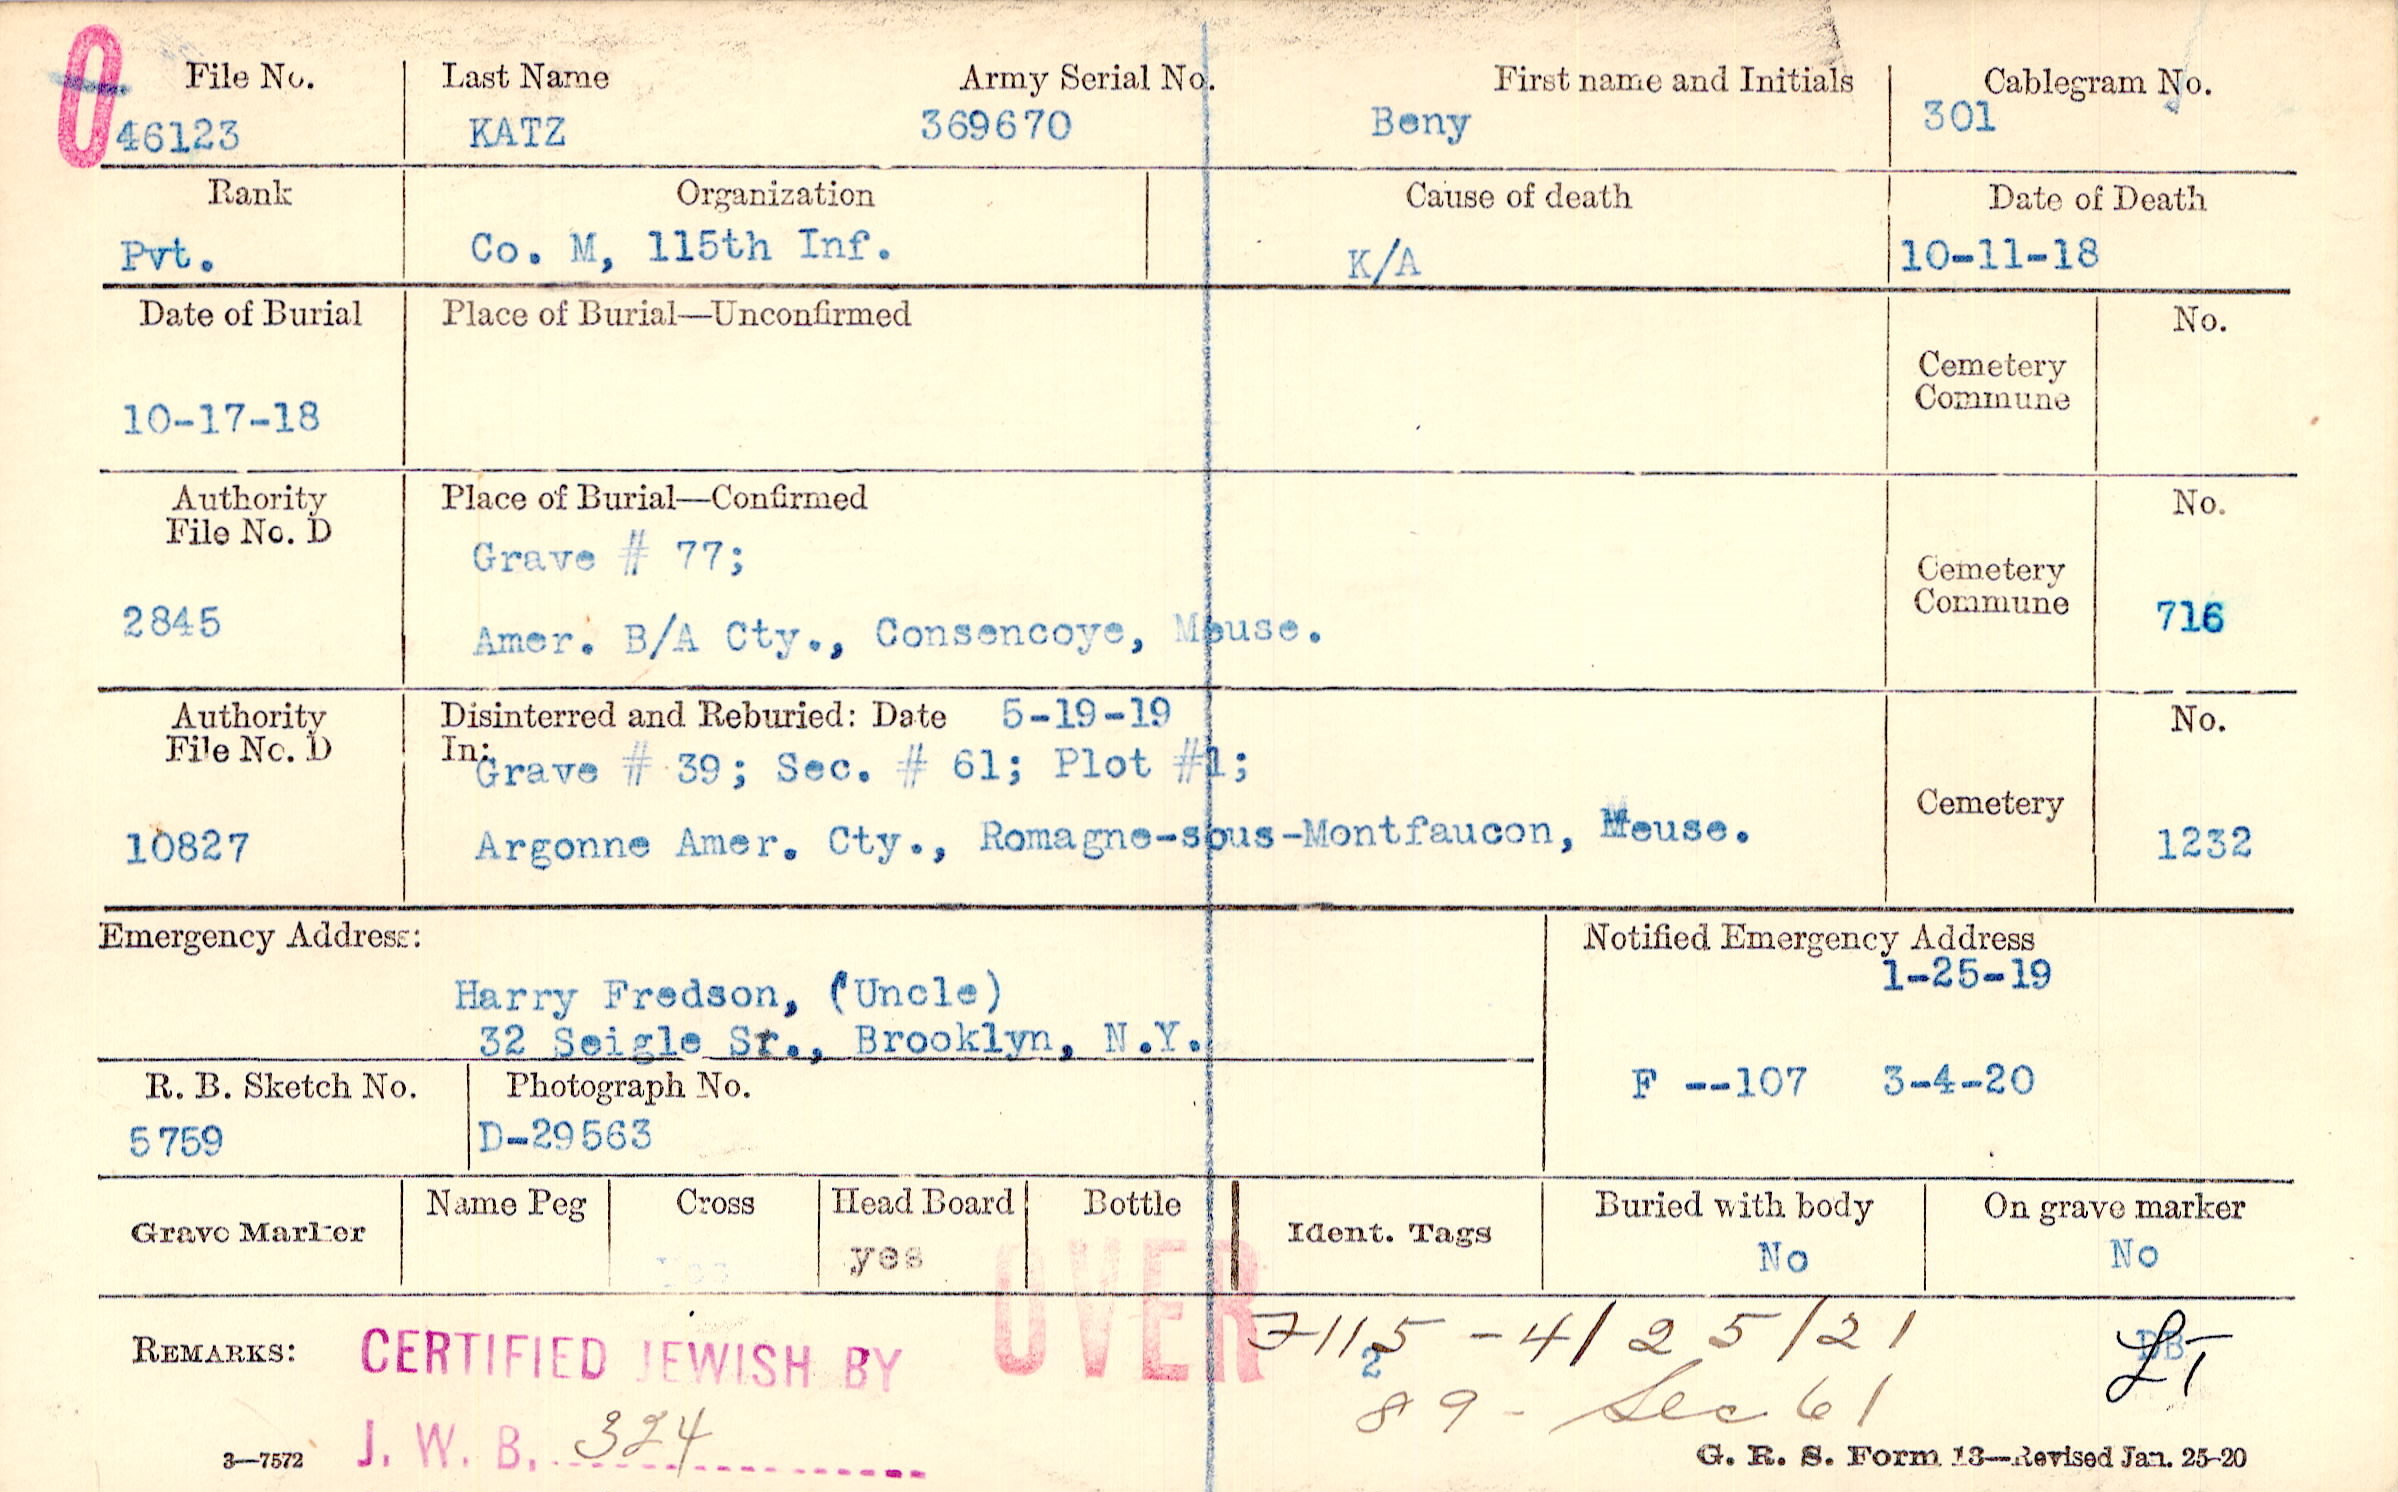 0
File No. Last Name Army Serial No. First name and Initials Cablegram No.
46123 KATZ 369670 Beny 301
Rank Organization Cause of death Date of Death
Pvt. Co. M, 115th Inf. K/A 10-11-18
Date of Burial Place of Burial—Unconfirmed No.
Cemetery
Commune
10-17-18
Authority Place of Burial—Confirmed No.
File No. D
Grave # 77;
Cemetery
Commune
2845 716
Amer. B/A Cty., Consencoye, Meuse.
Authority Disinterred and Reburied: Date 5-19-19 No.
File No. D In:
Grave # 39; Sec. # 61; Plot #1;
Cemetery
10827 Argonne Amer. Cty., Romagne-sous-Montfaucon, Meuse. 1232
Emergency Address: Notified Emergency Address
1-25-19
Harry Fredson, (Uncle)
32 Seigle St., Brooklyn, N.Y.
R. B. Sketch No. Photograph No. F --107 3-4-20
5759 D-29563
Grave Marker Name Peg Cross Head Board Bottle Ident. Tags Buried with body On grave marker
yes No No
OVER
REMARKS: CERTIFIED JEWISH BY 7115 -4/25/21
2
DB
LT
89 - Sec 61
J. W. B. 324
3—7572 G. R. S. Form 13—Revised Jan. 25-20